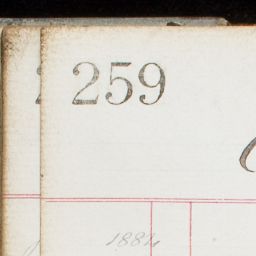 259
1884